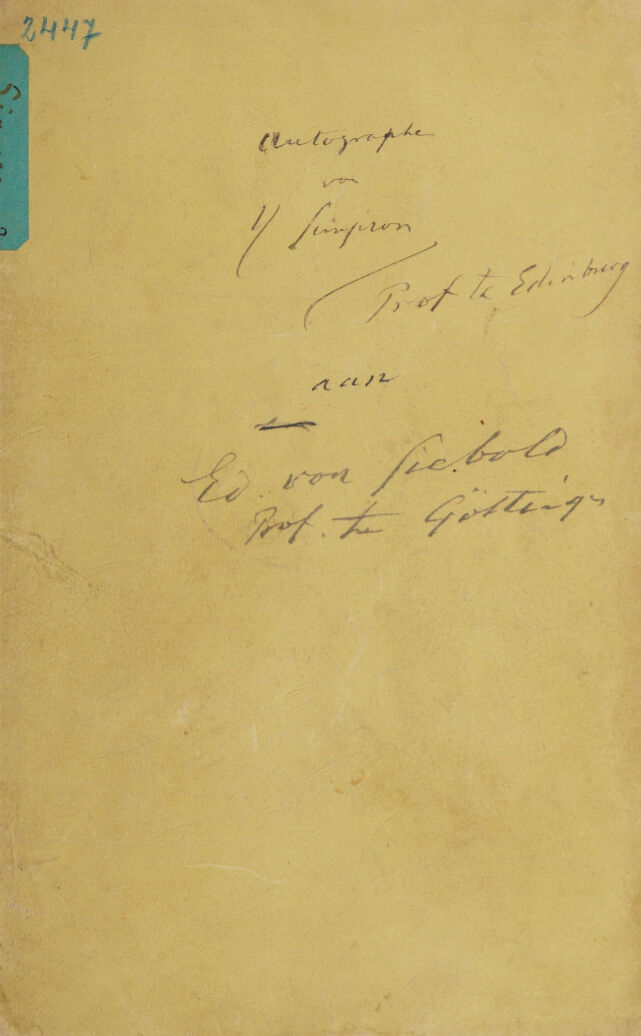 2447
Autographe
von
Y Simpson
Prof te Edinburg
aan
Ed. von Siebold
Prof. te Göttingn